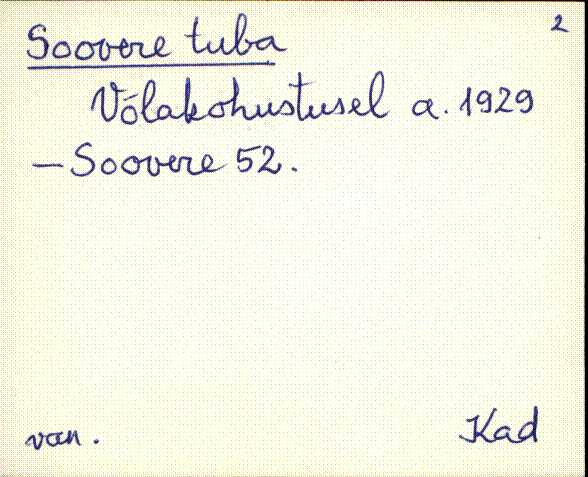 2
Soovere tuba
Võlakohustusel a. 1929
– Soovere 52.
van. Kad